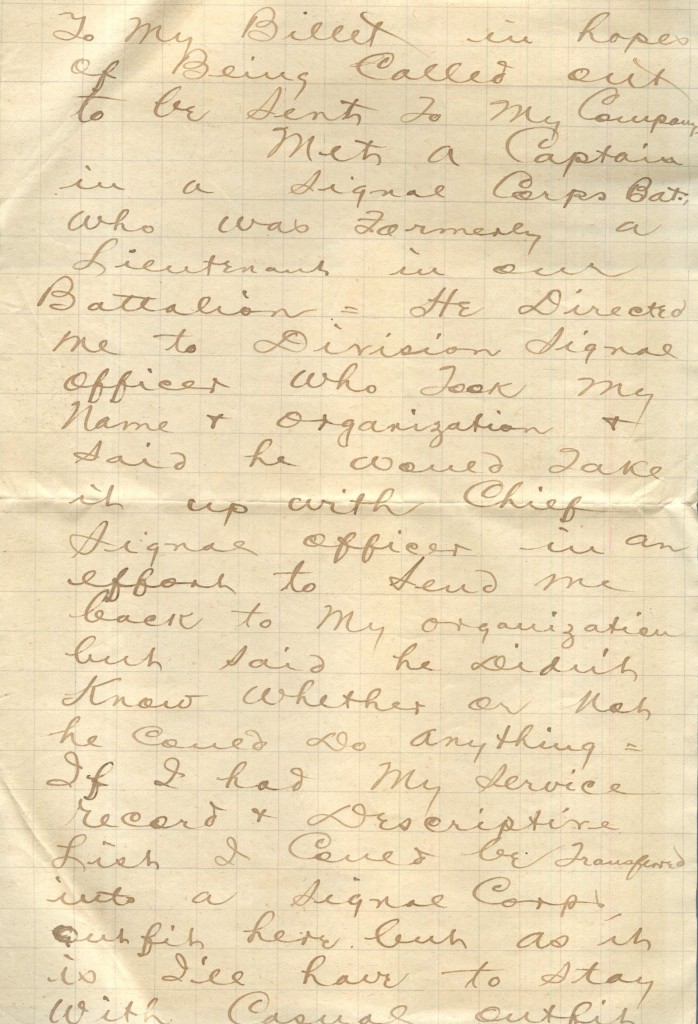 To My Billet in hopes
of Being Called out
to be sent to My Company
Met a Captain
in a Signal Corps Bat.,
who was Formerly a
Lieutenant in our
Battalion = He Directed
me to Division Signal
officer who Took My
Name & organization &
said he would Take
it up with Chief
Signal officer in an
effort to send me
back to My organization
but said he Didn't
Know whether or Not
he Could Do anything =
If I had My Service
record & Descriptive
List I Could be Transferred
into a Signal Corps
outfit here but as it
is I'll have to stay
With Casual outfit